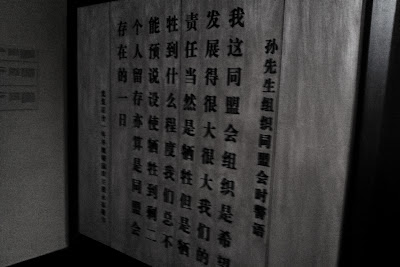 孙先生组织同盟会时警语
我这同盟会组织是希望
发展得很大很大我们的
责任当然是牺牲但是牺
牲到什么程度我们总不
能预说设使牺牲到剩二
个人留存亦算是同盟会
存在的一日